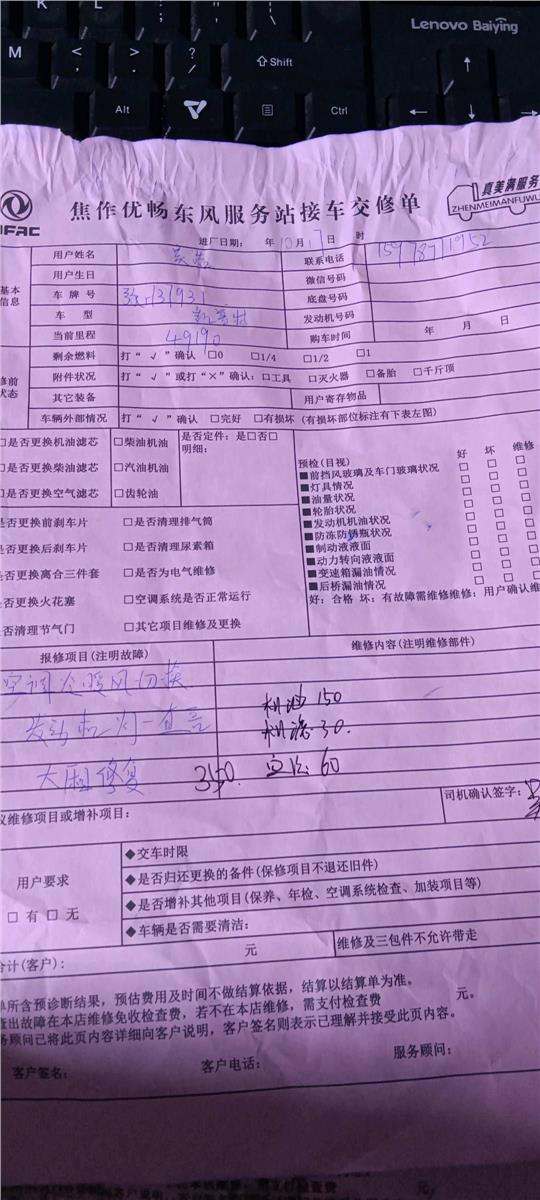 K L
Lenovo Baiying
M < , > . ? / ⇧Shift ↑
Alt Ctrl ← ↓ →
真美满服务
ZHENMEIMANFUWU
焦作优畅东风服务站接车交修单
进厂日期: 年10月17日 时
基本信息
用户姓名 联系电话
用户生日 微信号码
车牌号 底盘号码
车型 发动机号码
当前里程 49190 购车时间 年 月 日
修前状态
剩余燃料 打“√”确认 □0 □1/4 □1/2 □1
附件状况 打“√”或打“×”确认:□工具 □灭火器 □备胎 □千斤顶
其它装备 用户寄存物品
车辆外部情况 打“√”确认 □完好 □有损坏(有损坏部位标注有下表左图)
□是否更换机油滤芯 □柴油机油 是否定件:是□否□
明细:
□是否更换柴油滤芯 □汽油机油
□是否更换空气滤芯 □齿轮油
预检(目视) 好 坏 维修
■前挡风玻璃及车门玻璃状况 □ □ □
■灯具情况 □ □ □
■油量状况 □ □ □
■轮胎状况 □ □ □
■发动机机油状况 □ □ □
■防冻防锈瓶状况 □ □ □
■制动液液面 □ □ □
■动力转向液液面 □ □ □
■变速箱漏油情况 □ □ □
■后桥漏油情况 □ □ □
好:合格 坏:有故障需维修维修:用户确认维
是否更换前刹车片 □是否清理排气筒
是否更换后刹车片 □是否清理尿素箱
是否更换离合三件套 □是否为电气维修
是否更换火花塞 □空调系统是否正常运行
是否清理节气门 □其它项目维修及更换
报修项目(注明故障) 维修内容(注明维修部件)
空调冷暖风切换
发动机灯一直亮
机油 150
机滤 30.
大厢修复 350. 60
议维修项目或增补项目: 司机确认签字:
用户要求
□有□无
◆交车时限
◆是否归还更换的备件(保修项目不退还旧件)
◆是否增补其他项目(保养、年检、空调系统检查、加装项目等)
◆车辆是否需要清洁:
合计(客户): 元 维修及三包件不允许带走
单所含预诊断结果,预估费用及时间不做结算依据,结算以结算单为准。
查出故障在本店维修免收检查费,若不在本店维修,需支付检查费 元。
务顾问已将此页内容详细向客户说明,客户签名则表示已理解并接受此页内容。
客户签名: 客户电话: 服务顾问: